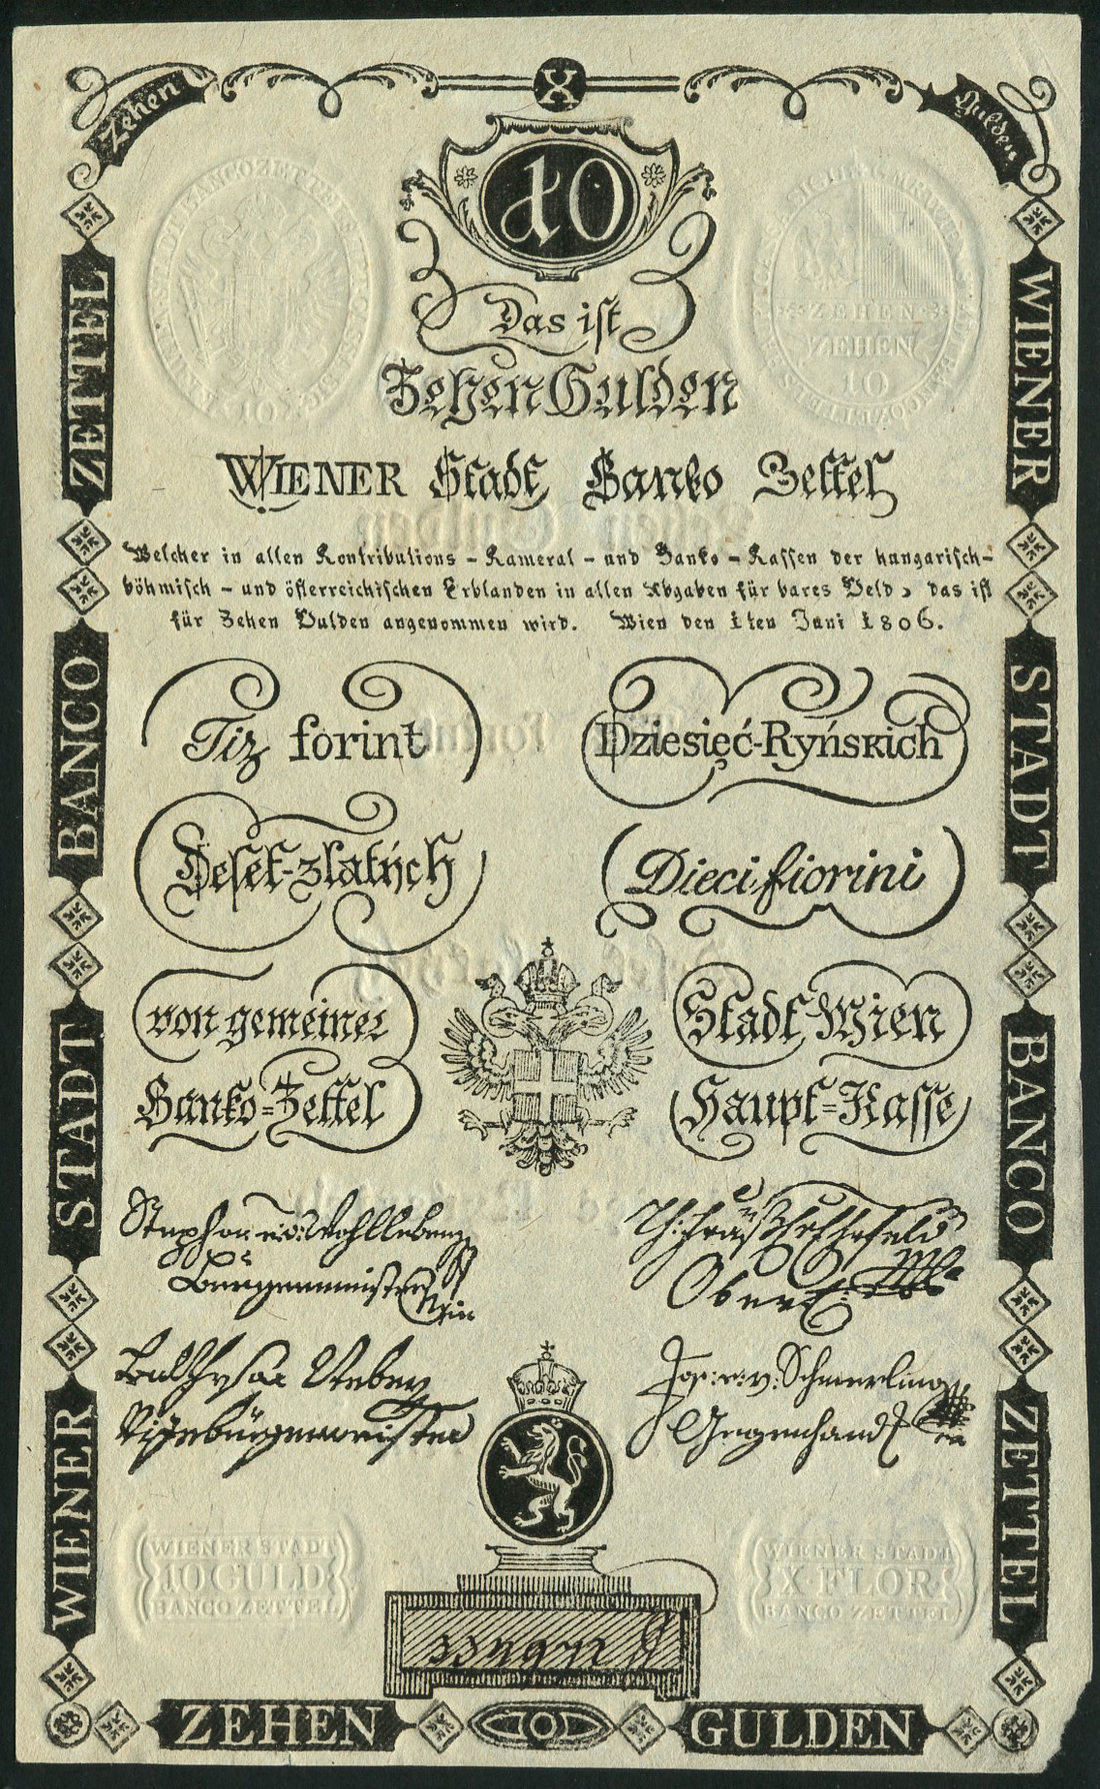 Zehen X Gulden
10
Das ist
Zehen Gulden
WIENER Stadt Banko Zettel
Welcher in allen Kontributions-Kameral-und Banko-Kassen der hungarisch-
böhmisch-und österreichischen Erblanden in allen Abgaben für bares Geld, das ist
für Zehen Gulden angenommen wird. Wien den 1ten Juni 1806.
Tiz forint
Dziesięć-Ryńskich
Deset-zlatých
Dieci fiorini
von gemeiner
Stadt Wien
Banko=Zettel
Haupt=Kasse
Stephan v: Wohlleben
Bürgermeister
Wien
Jos: v: Schmerling
Vizebürgermeister
Gegenhand
ZETTEL
BANCO
STADT
WIENER
WIENER
STADT
BANCO
ZETTEL
ZEHEN
ZEHEN
10
WIENER STADT
10 GULD
BANCO ZETTEL
WIENER STADT
X FLOR
BANCO ZETTEL
ZEHEN GULDEN